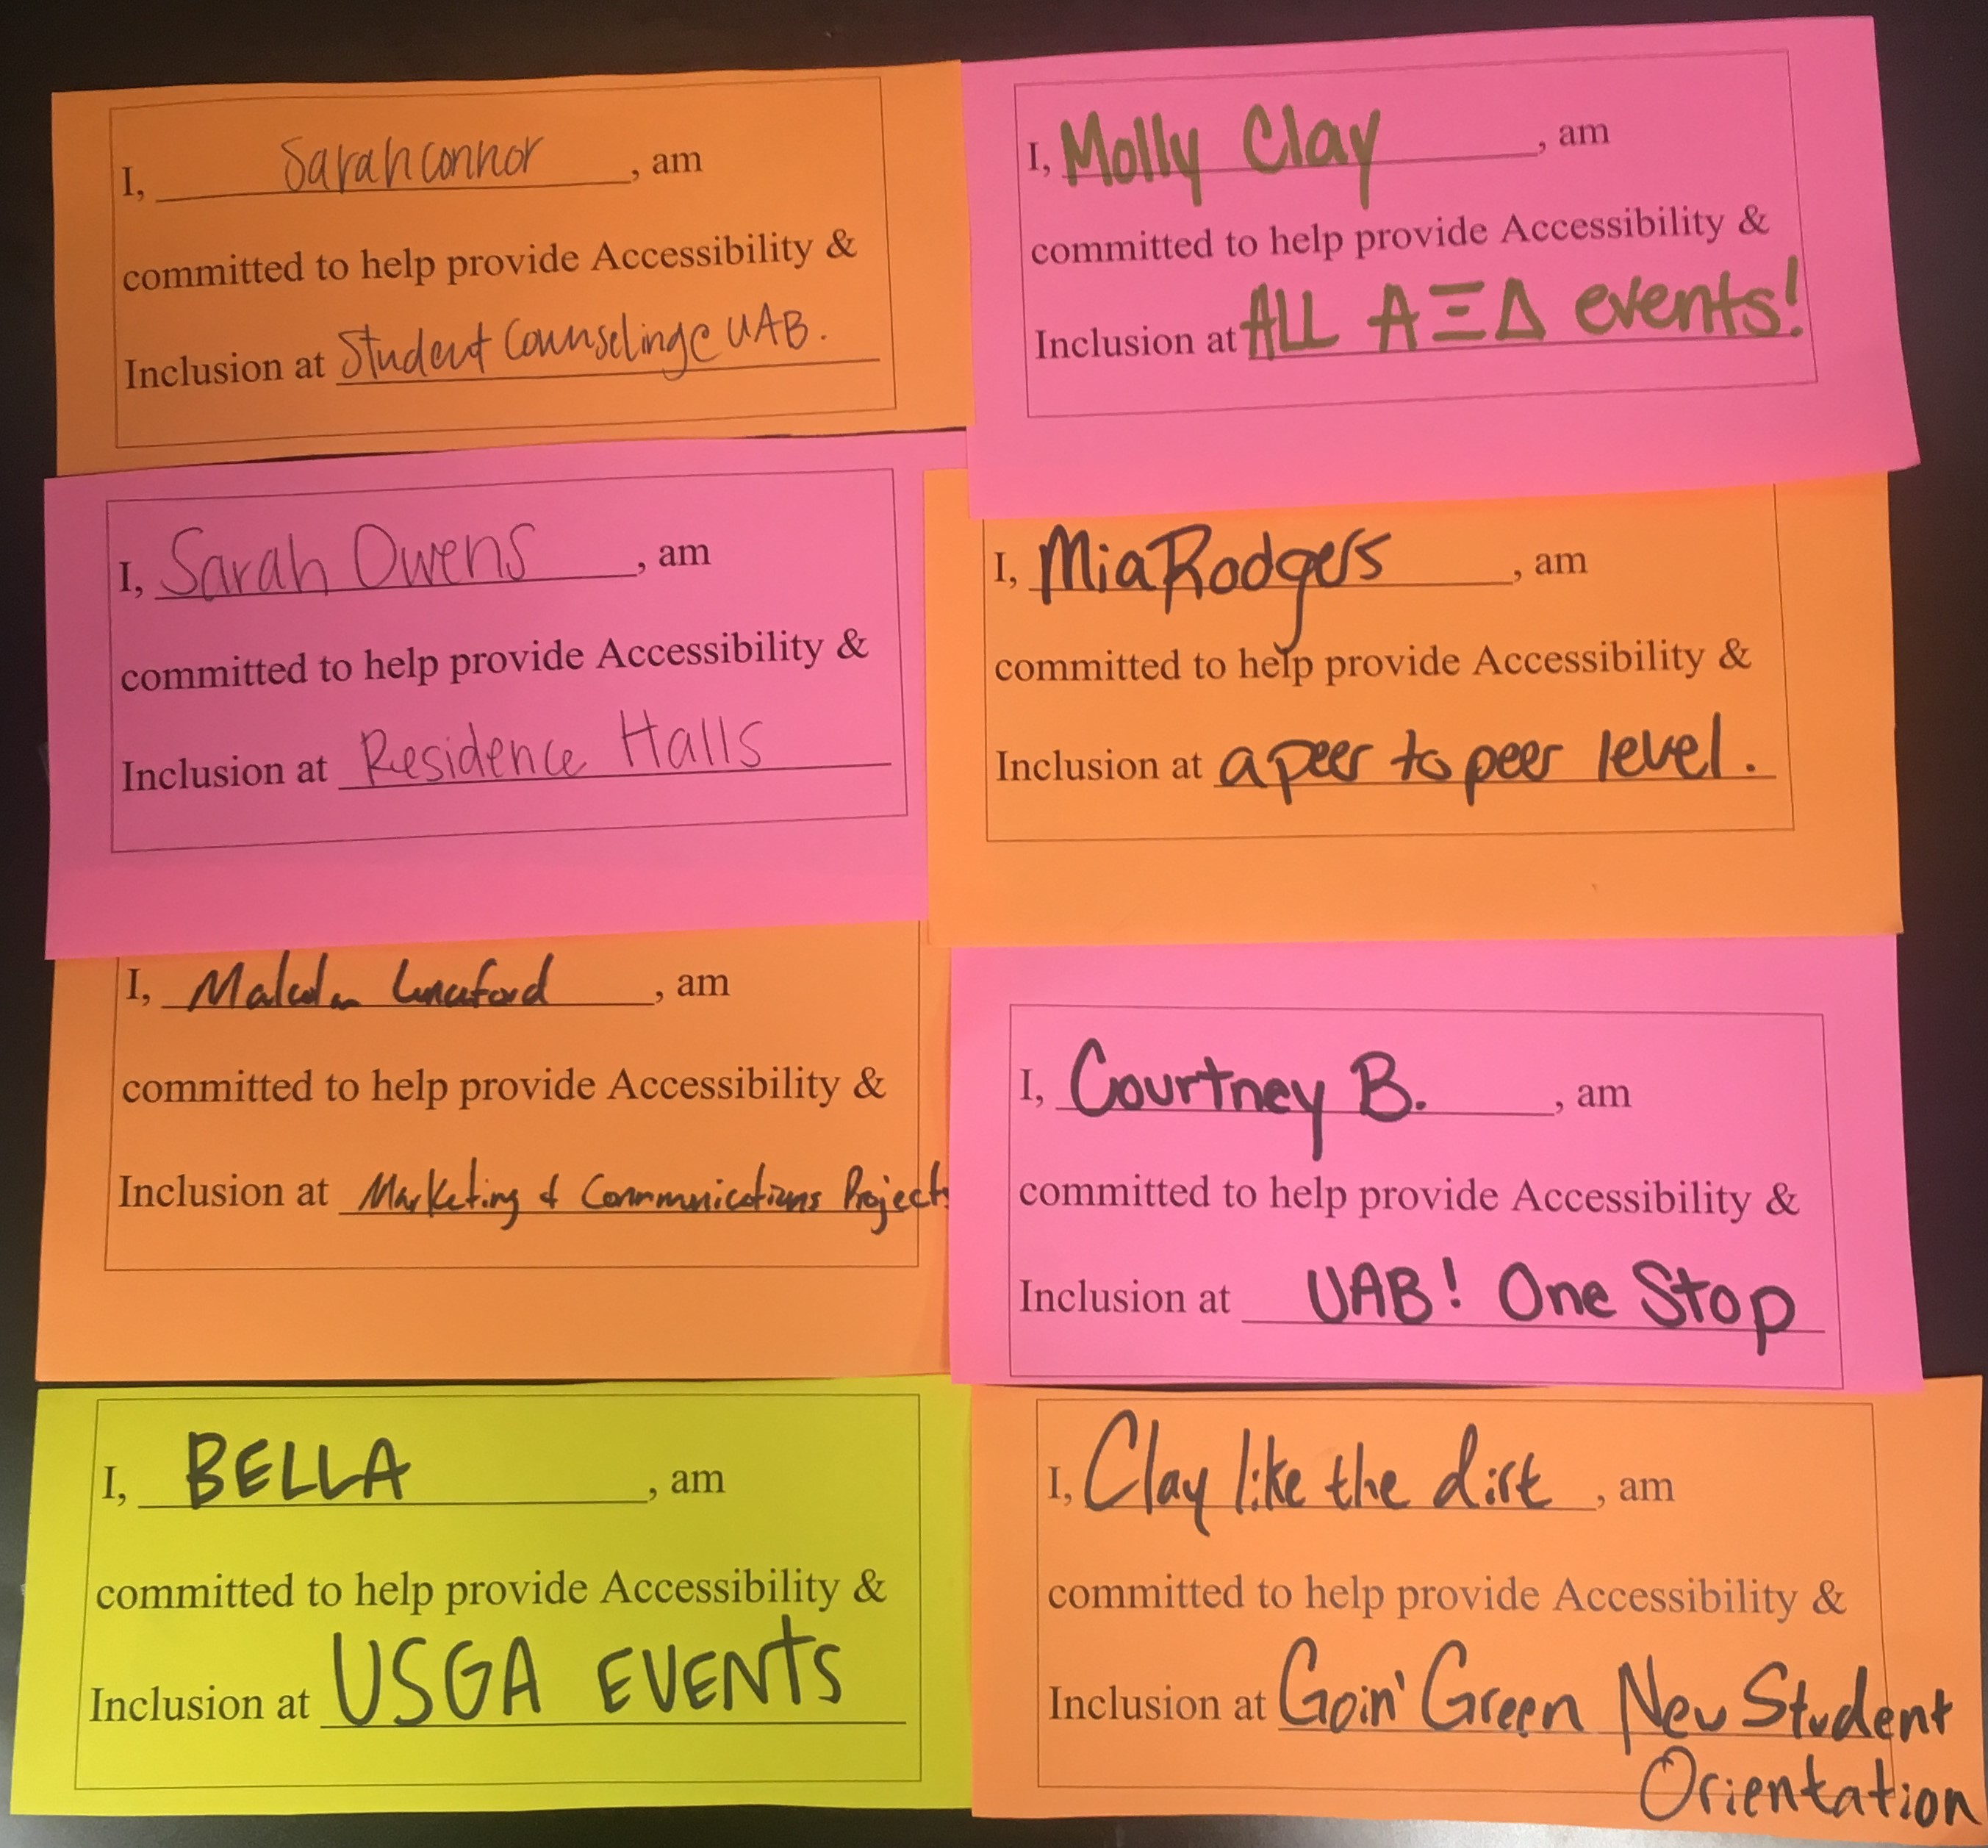 I, Sarah Connor, am
committed to help provide Accessibility &
Inclusion at Student Counseling @ UAB.
I, Molly Clay, am
committed to help provide Accessibility &
Inclusion at ALL ΑΞΔ events!
I, Sarah Owens, am
committed to help provide Accessibility &
Inclusion at Residence Halls
I, Mia Rodgers, am
committed to help provide Accessibility &
Inclusion at a peer to peer level.
I, Malcolm Lunsford, am
committed to help provide Accessibility &
Inclusion at Marketing & Communications Projects
I, Courtney B., am
committed to help provide Accessibility &
Inclusion at UAB! One Stop
I, BELLA, am
committed to help provide Accessibility &
Inclusion at USGA EVENTS
I, Clay like the dirt, am
committed to help provide Accessibility &
Inclusion at Goin' Green New Student
Orientation